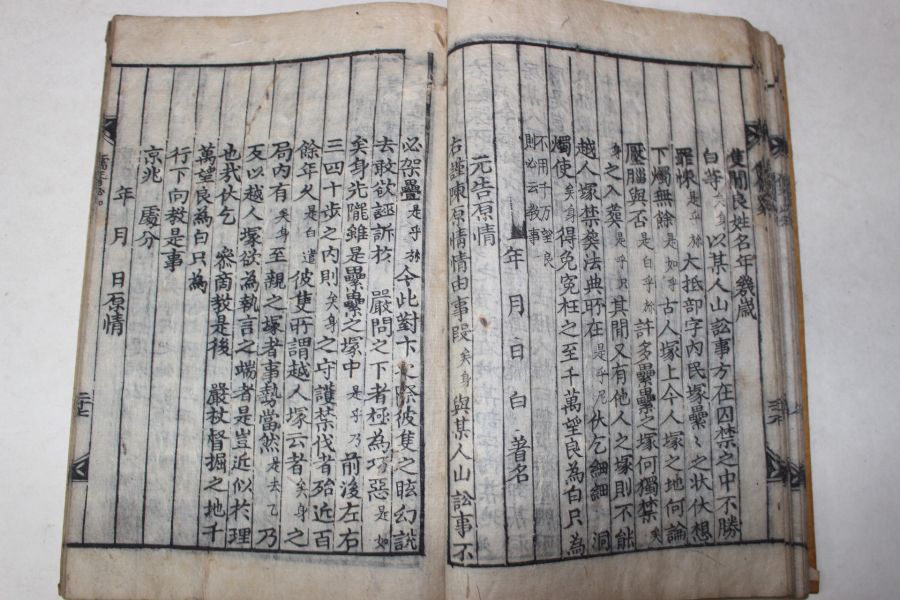 隻閑良姓名年幾歲
白等矣身以某人山訟事方在囚禁之中不勝
罪悚是乎旀大抵部字內民塚壘〻之狀伏想
下燭無餘是如乎古人塚上今人塚之地何論
壓腦與否是白乎旀許多壘壘之塚何獨禁矣
身之入葬是乎旀只其間又有他人之塚則不能
越人塚禁葬法典所在是乎尼伏乞細細洞
燭使矣身得免寃枉之至千萬望良為白只為
年月日白著名
不用千万望良
則必云教事
元告原情
右謹陳原情情由事段矣身與某人山訟事不
必架疊是乎旀今此對卞之際彼隻之眩幻說
去敢欲誣訴於嚴問之下者極為巧惡是如
矣身先隴雖是壘壘之塚中是乎乃前後左右
三四十步之內則矣身之守護禁伐者殆近百
餘年久是白遣彼隻所謂越人塚云者矣身之
局內有矣身至親之塚者事勢當然是去乙乃
反以越人塚欲為執言之端者是豈近似於理
也哉伏乞參商教是後嚴杖督掘之地千
萬望良為白只為
行下向教是事
京兆處分
年月日原情